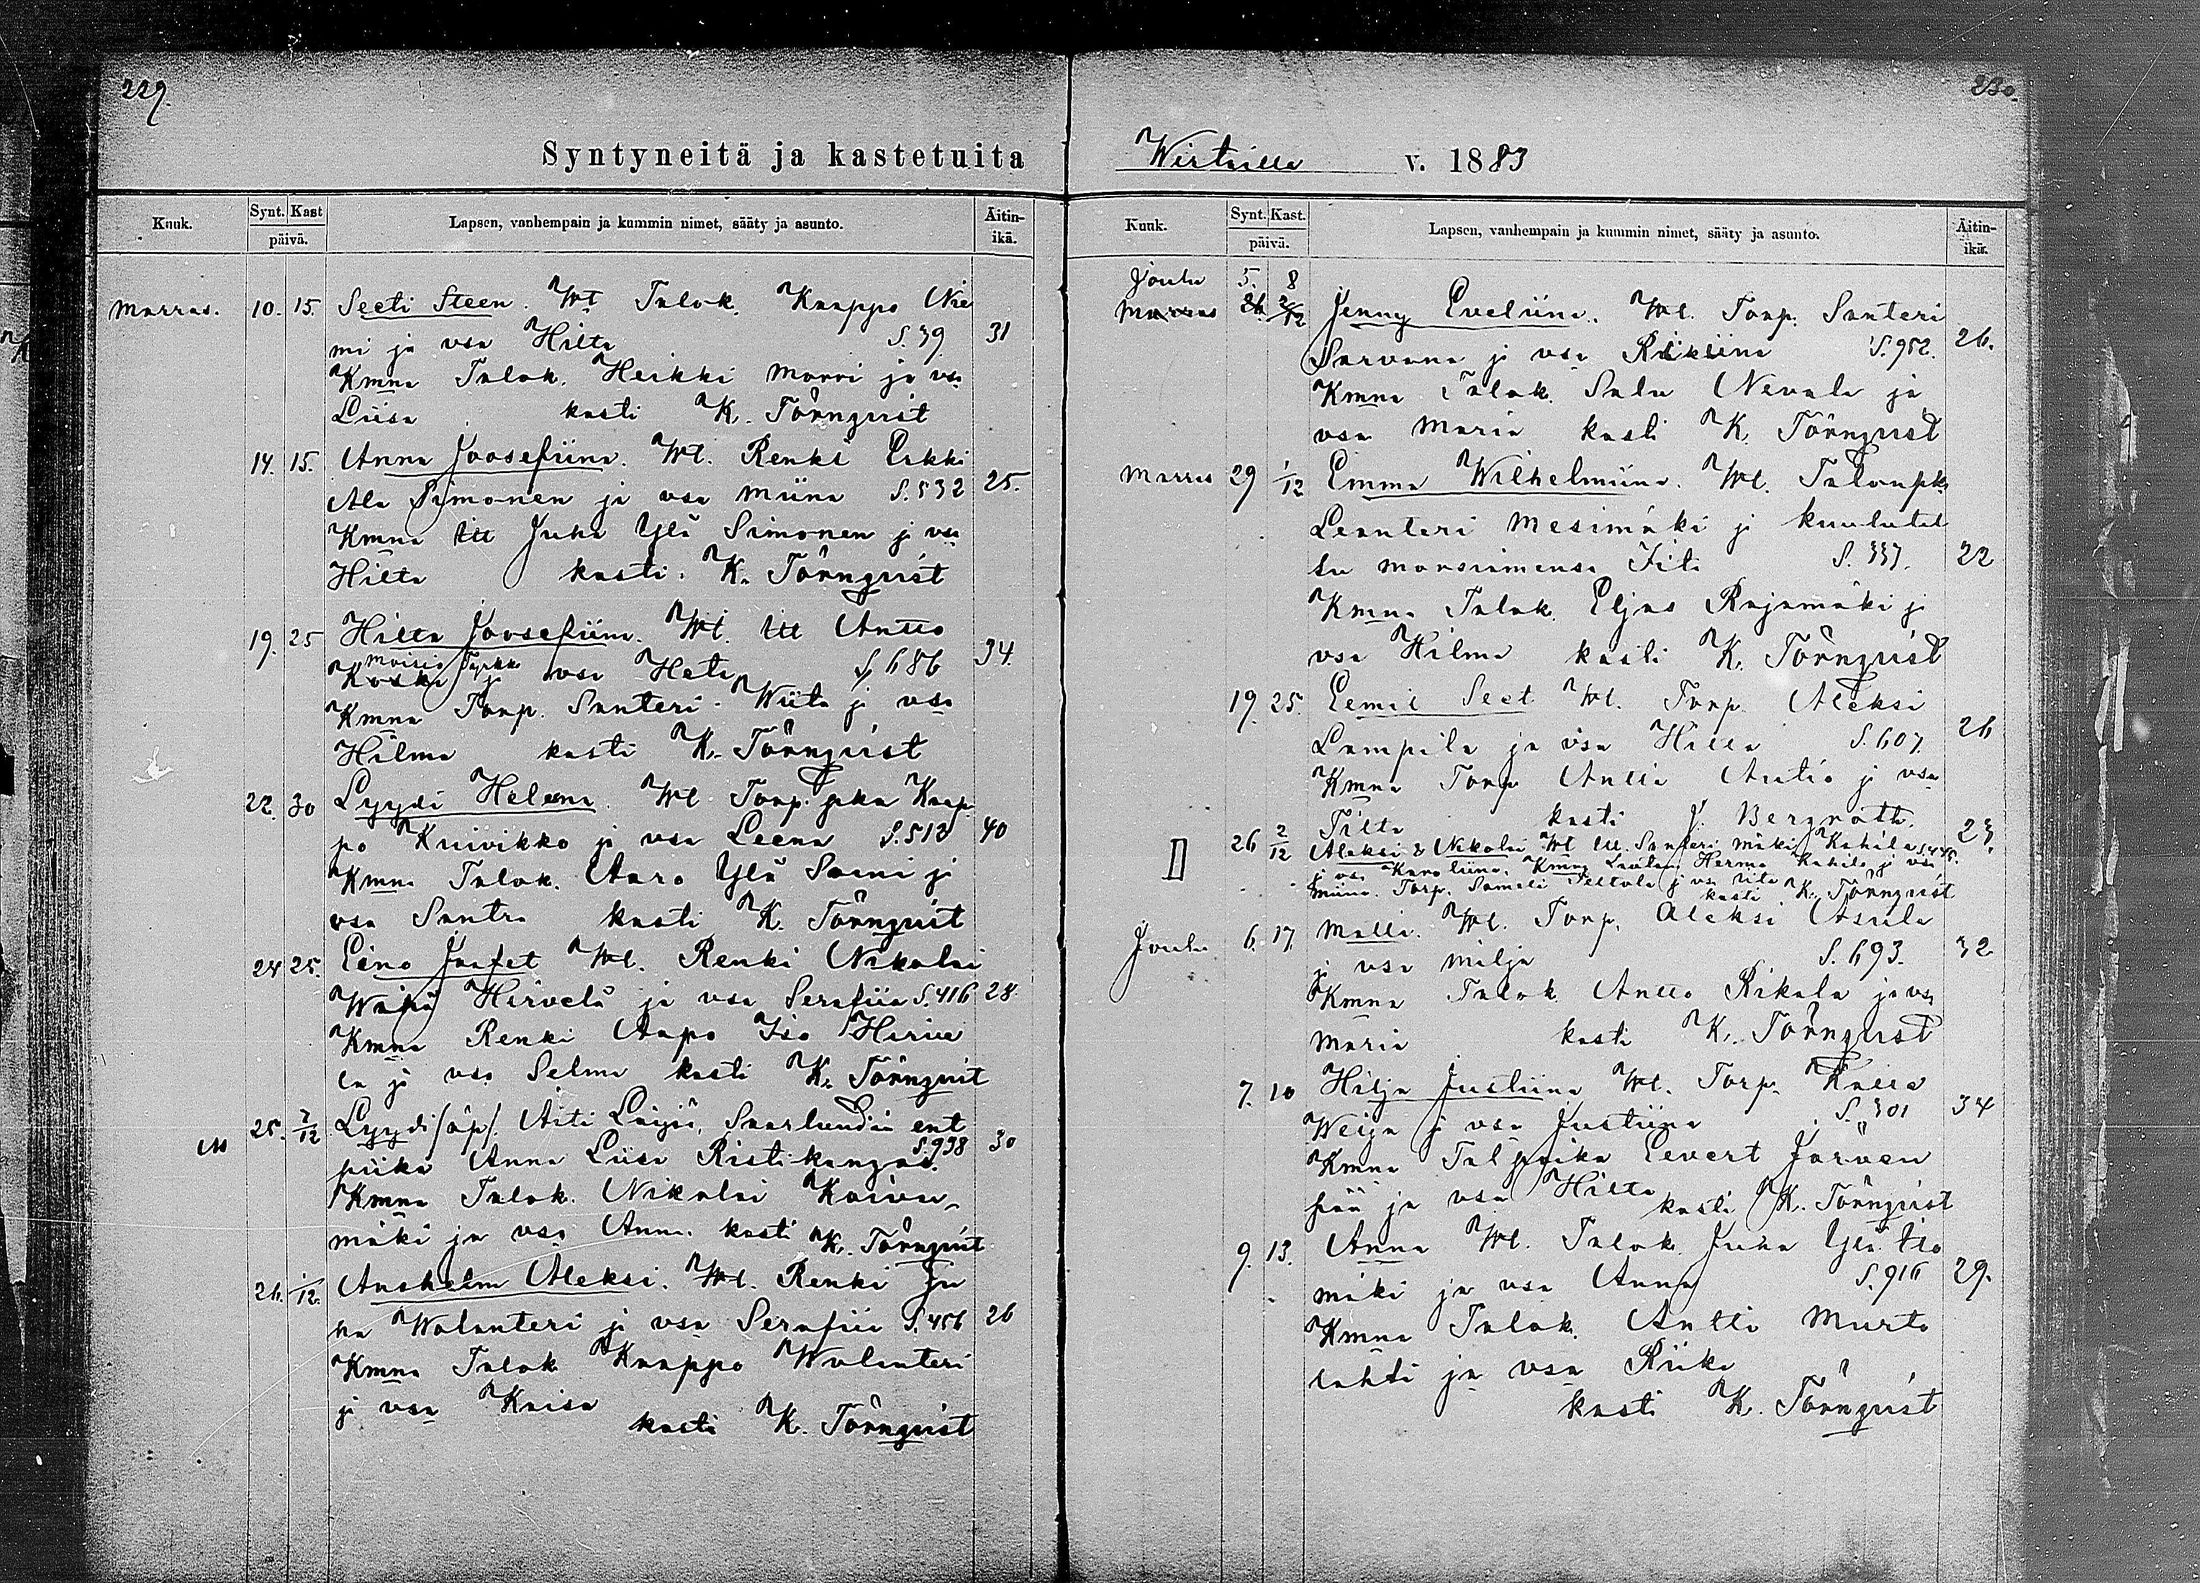 229.
Syntyneitä ja kastetuita
Kuuk. Synt. Kast päivä. Lapsen, vanhempain ja kummin nimet, sääty ja asunto. Äitin-ikä.
Marras. 10. 15. Seeti Steen. Wt Talok. Kaappo Nie
mi ja vsa Hilta S. 39 31
Kmna Talok. Heikki Morri ja vsa
Liisa kasti K. Törnqvist
14. 15. Anna Joosefiina. Wt. Renki Erkki
Ala Simonen ja vsa Miina S. 532 25.
Kmna Itt Juha Ylä Simonen ja vsa
Hilta kasti K. Törnqvist
19. 25 Hilta Joosefiina. Wt. Itt Antto
Koski ja vsa Heta S. 686 34.
Kmna Torp. Santeri Wiita ja vsa
Hilma kasti K. Törnqvist
22. 30 Lyydi Heleena. Wt Torp. pka Kaap
po Kuivikko ja vsa Leena S. 512 40
Kmna Talok. Aaro Ylä Soini ja
vsa Santra kasti K. Törnqvist
24 25. Eino Jaafet Wt. Renki Nikolai
Wähä Hirvelä ja vsa Serafiia S. 416 28.
Kmna Renki Aapo Iso Hirve
lä ja vsa Selma kasti K. Törnqvist
25. 2/12 Lyydi /äp/. Äiti ent
piika Anna Liisa Ristikangas. S. 938 30
Kmna Talok. Nikolai Koivu-
mäki ja vsa Anna. kasti K. Törnqvist
26. 1/12. Anshelm Aleksi. Wt. Renki Ju
ha Walanteri ja vsa Serafiia S. 456 26
Kmna Talok Kaappo Walanteri
ja vsa Kaisa
kasti K. Törnqvist
230.
Wirtailla v. 1883
Kuuk. Synt. Kast. päivä. Lapsen, vanhempain ja kummin nimet, sääty ja asunto. Äitin-ikä.
Joulu 5. 8
Marras 26. 2/12 Jenny Eveliina. Wt. Torp. Santeri
Sarvana ja vsa Riikiina S. 952. 26.
Kmna Talok. Salu Nevala ja
vsa Maria kasti K. Törnqvist
Marras 29 1/12 Emma Wilhelmiina. Wt. Talonpk.
Leanteri Mesimäki ja kuulutet
tu morsiamensa Iita S. 337. 22
Kmna Talok. Eljas Rajamäki ja
vsa Hilma kasti K. Törnqvist
19. 25. Eemil Seet Wt. Torp. Aleksi
Lampila ja vsa Hilta S. 607. 26
Kmna Torp Antti Autio ja vsa
Tilta kasti J. Bergroth.
26 2/12 Aleksi & Nikolai Wt Itt. Santeri Mäki Kahila 23.
ja vsa Karoliina. Kmna Herma Kahila ja vsa
Miina. Torp. Sameli Peltola ja vsa Iita kasti K. Törnqvist
Joulu 6. 17. Matti. Wt. Torp. Aleksi Assila
ja vsa Milja S. 693. 32
Kmna Talok Antto Rikala ja vsa
Maria kasti K. Törnqvist
7. 10 Hilja Justiina Wt. Torp. Kalle
Weija ja vsa Justiina S. 301 34
Kmna Tal poika Eevert Järven
pää ja vsa Hilta kasti K. Törnqvist
9. 13. Anna Wt. Talok Juha Ylä Iso
mäki ja vsa Anna S. 916 29.
Kmna Talok. Antti Murto
lahti ja vsa Riika
kasti K. Törnqvist